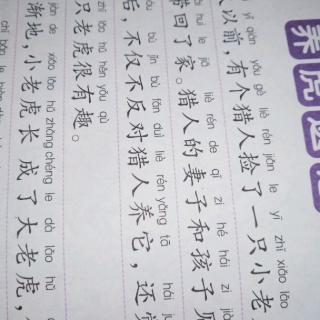 养虎遗
yǐ qián yǒu gè liè rén jiǎn le yì zhī xiǎo lǎo
以前,有个猎人捡了一只小老
huí le jiā liè rén de qī zi hé hái zi jiàn
带回了家。猎人的妻子和孩子见
bù jǐn bù fǎn duì liè rén yǎng tā hái
后,不仅不反对猎人养它,还觉
zhī lǎo hǔ hěn yǒu qù
只老虎很有趣。
jiàn de xiǎo lǎo hǔ zhǎng chéng le dà lǎo hǔ
渐地,小老虎长成了大老虎,
chī bǎo le